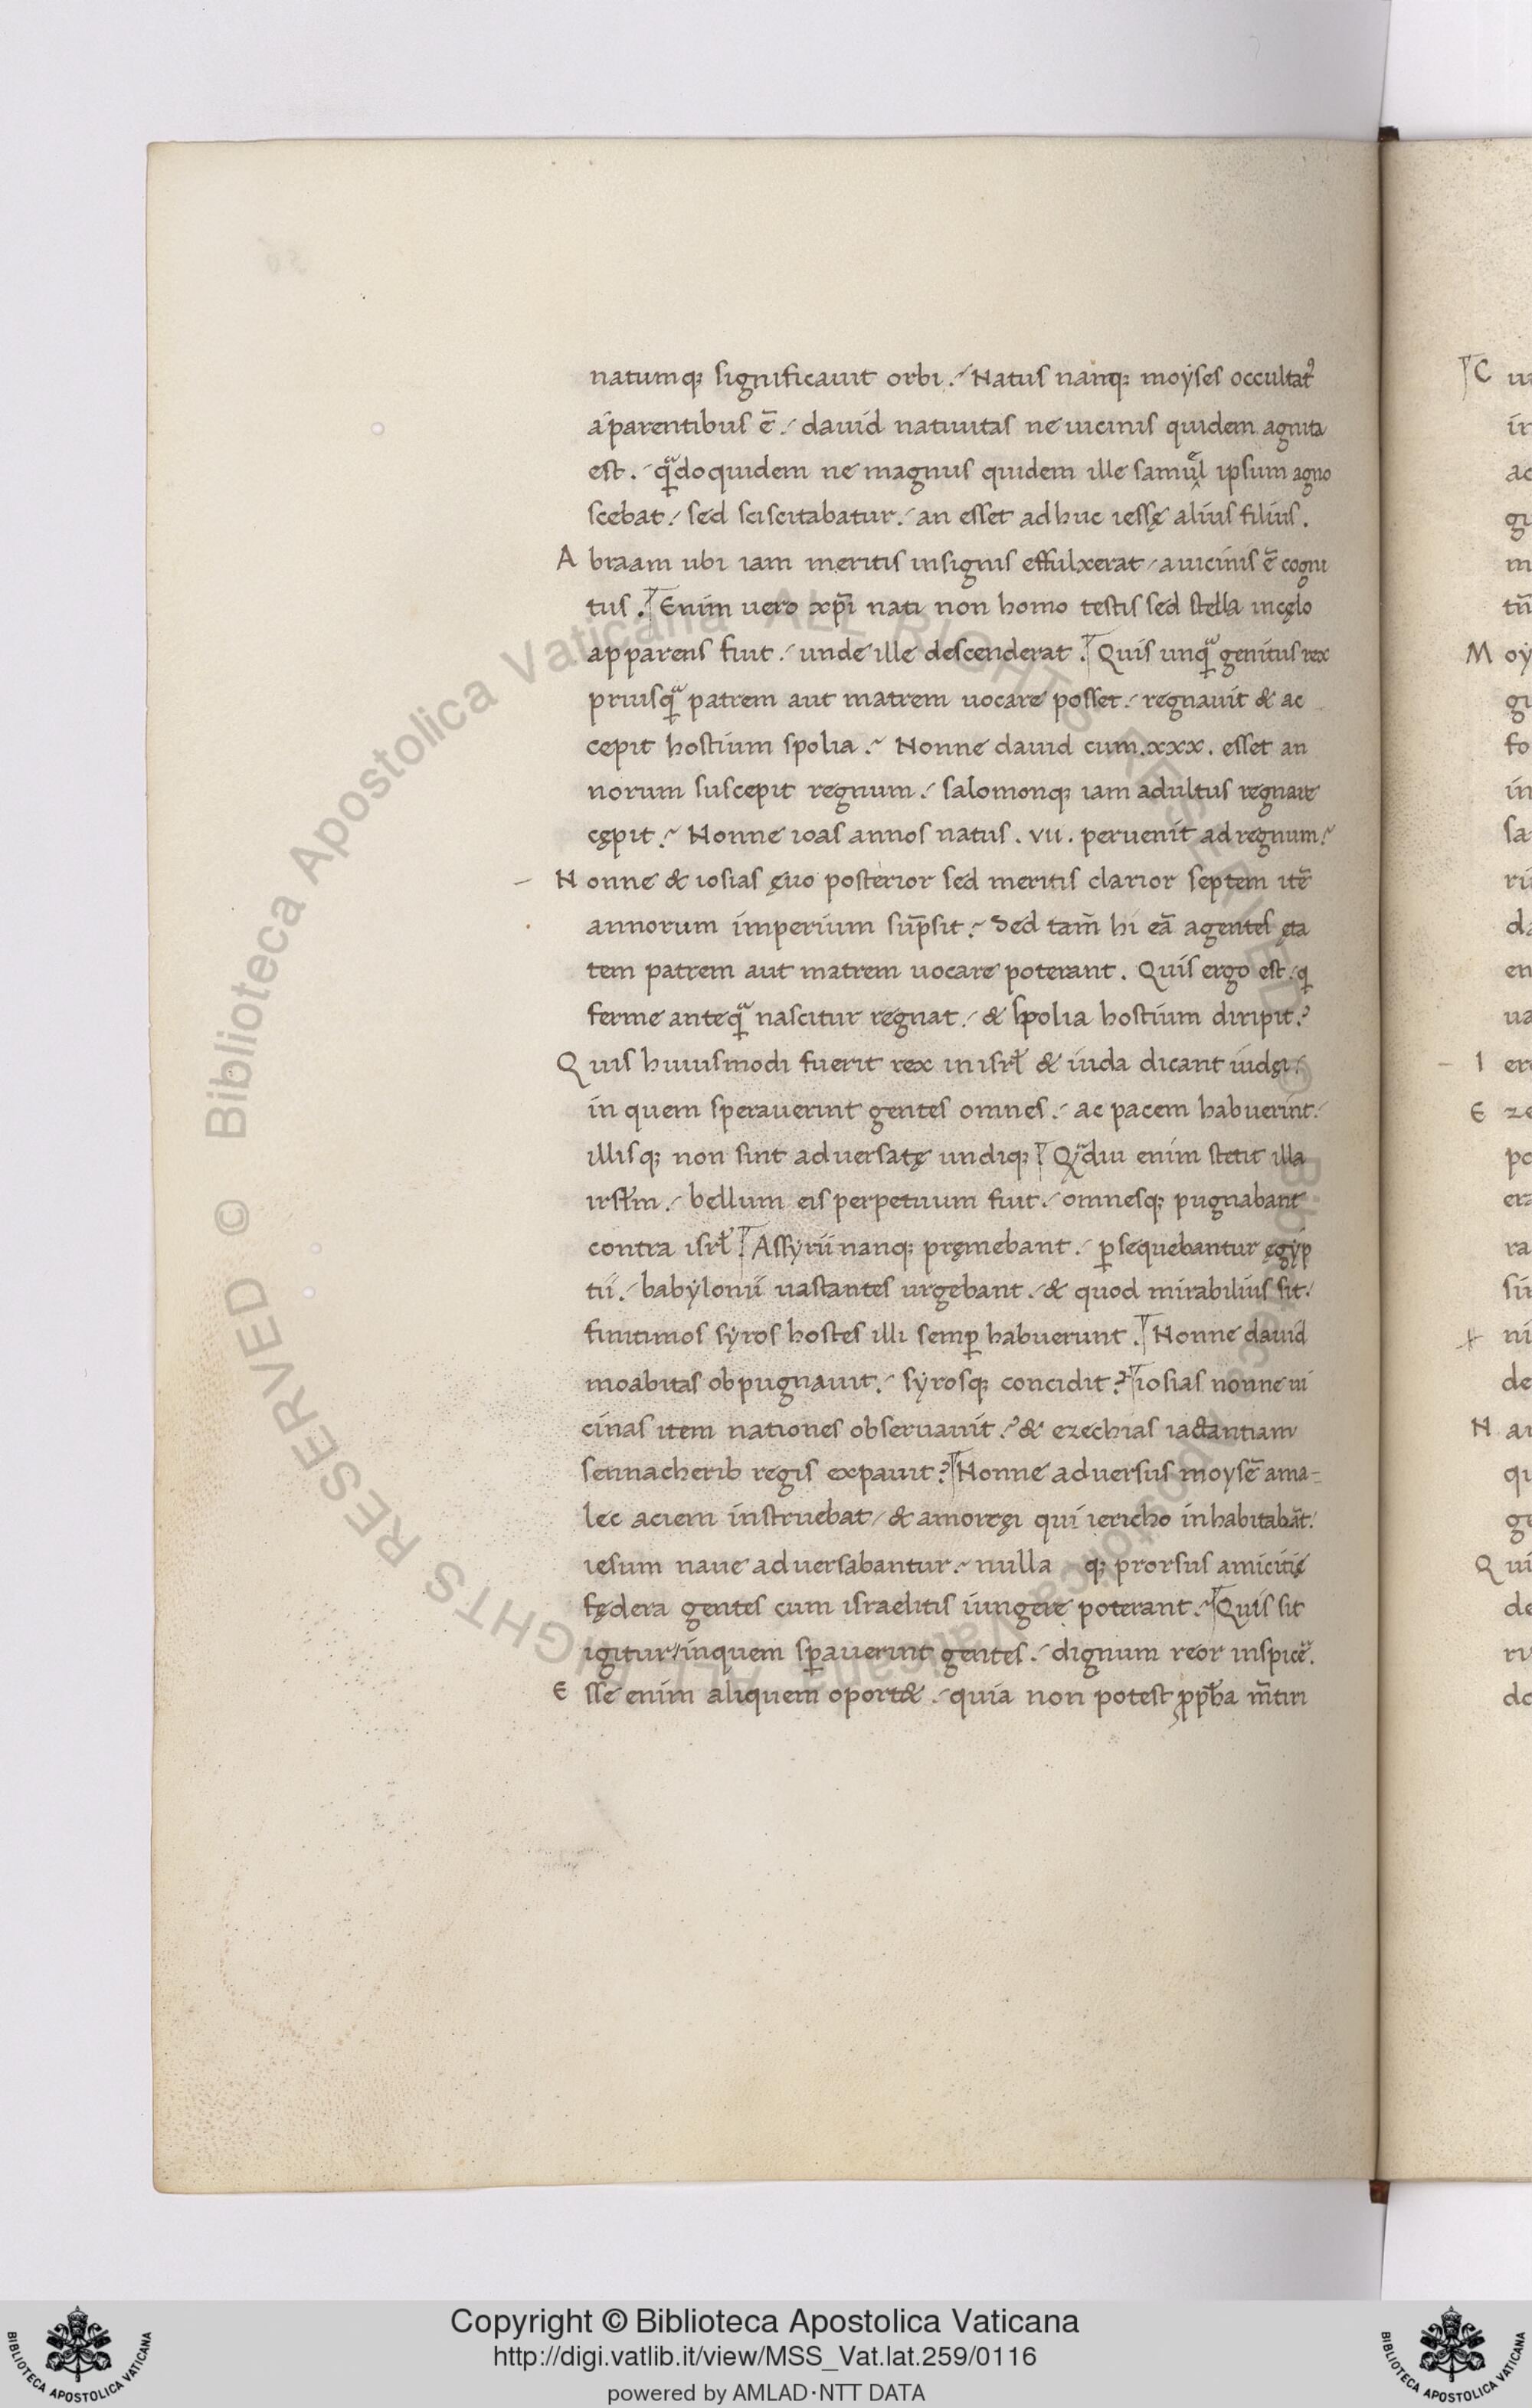 natumq; significauit orbi. Natus nanq; moÿses occultatꝰ
a parentibus ē. dauid natiuitas ne uicinis quidem agnita
est. qͣ̄doquidem ne magnus quidem ille samuel ipsum agno
scebat. sed sciscitabatur. an esset adhuc iessę alius filius.
Abraam ubi iam meritis insignis effulxerat a uicinis ē cogni
tus. Enim uero xp̄i nati non homo testis sed stella in cęlo
apparens fuit. unde ille descenderat. Quis unqͣ̄ genitus rex
priusqͣ̄ patrem aut matrem uocare posset. regnauit & ac
cepit hostium spolia. Nonne dauid cum .xxx. esset an
norum suscepit regnum. salomonq; iam adultus regnare
cępit. Nonne ioas annos natus .vii. peruenit ad regnum.
Nonne & iosias ęuo posterior sed meritis clarior septem itē
annorum imperium sūpsit. Sed tam̄ hi eā agentes ęta
tem patrem aut matrem uocare poterant. Quis ergo est. qͥ
ferme anteqͣ̄ nascitur regnat. & spolia hostium diripit?
Quis huiusmodi fuerit rex in isrł & iuda dicant iudęi.
in quem sperauerint gentes omnes. ac pacem habuerint.
illisq; non sint aduersatę undiq; Qͣ̄diu enim stetit illa
irsłm. bellum eis perpetuum fuit. omnesq; pugnabant
contra isrł. Assÿrii nanq; pręmebant. ꝑsequebantur ęgÿp
tii. babÿlonii uastantes urgebant. & quod mirabilius sit.
finitimos sÿros hostes illi semꝑ habuerunt. Nonne dauid
moabitas obpugnauit. sÿrosq; concidit? iosias nonne ui
cinas item nationes obseruauit? & ezechias iactantiam
sennacherib regis expauit? Nonne aduersus moysē ama-
lec aciem instruebat & amorręi qui iericho inhabitabāt.
iesum naue aduersabantur. nulla q; prorsus amicitię
fędera gentes cum israelitis iungere poterant. Quis sit
igitur in quem sꝑauerint gentes. dignum reor inspicē.
Esse enim aliquem oport&. quia non potest ꝓpħa m̄tiri
Copyright © Biblioteca Apostolica Vaticana
http://digi.vatlib.it/view/MSS_Vat.lat.259/0116
powered by AMLAD·NTT DATA
BIBLIOTECA APOSTOLICA VATICANA
BIBLIOTECA APOSTOLICA VATICANA